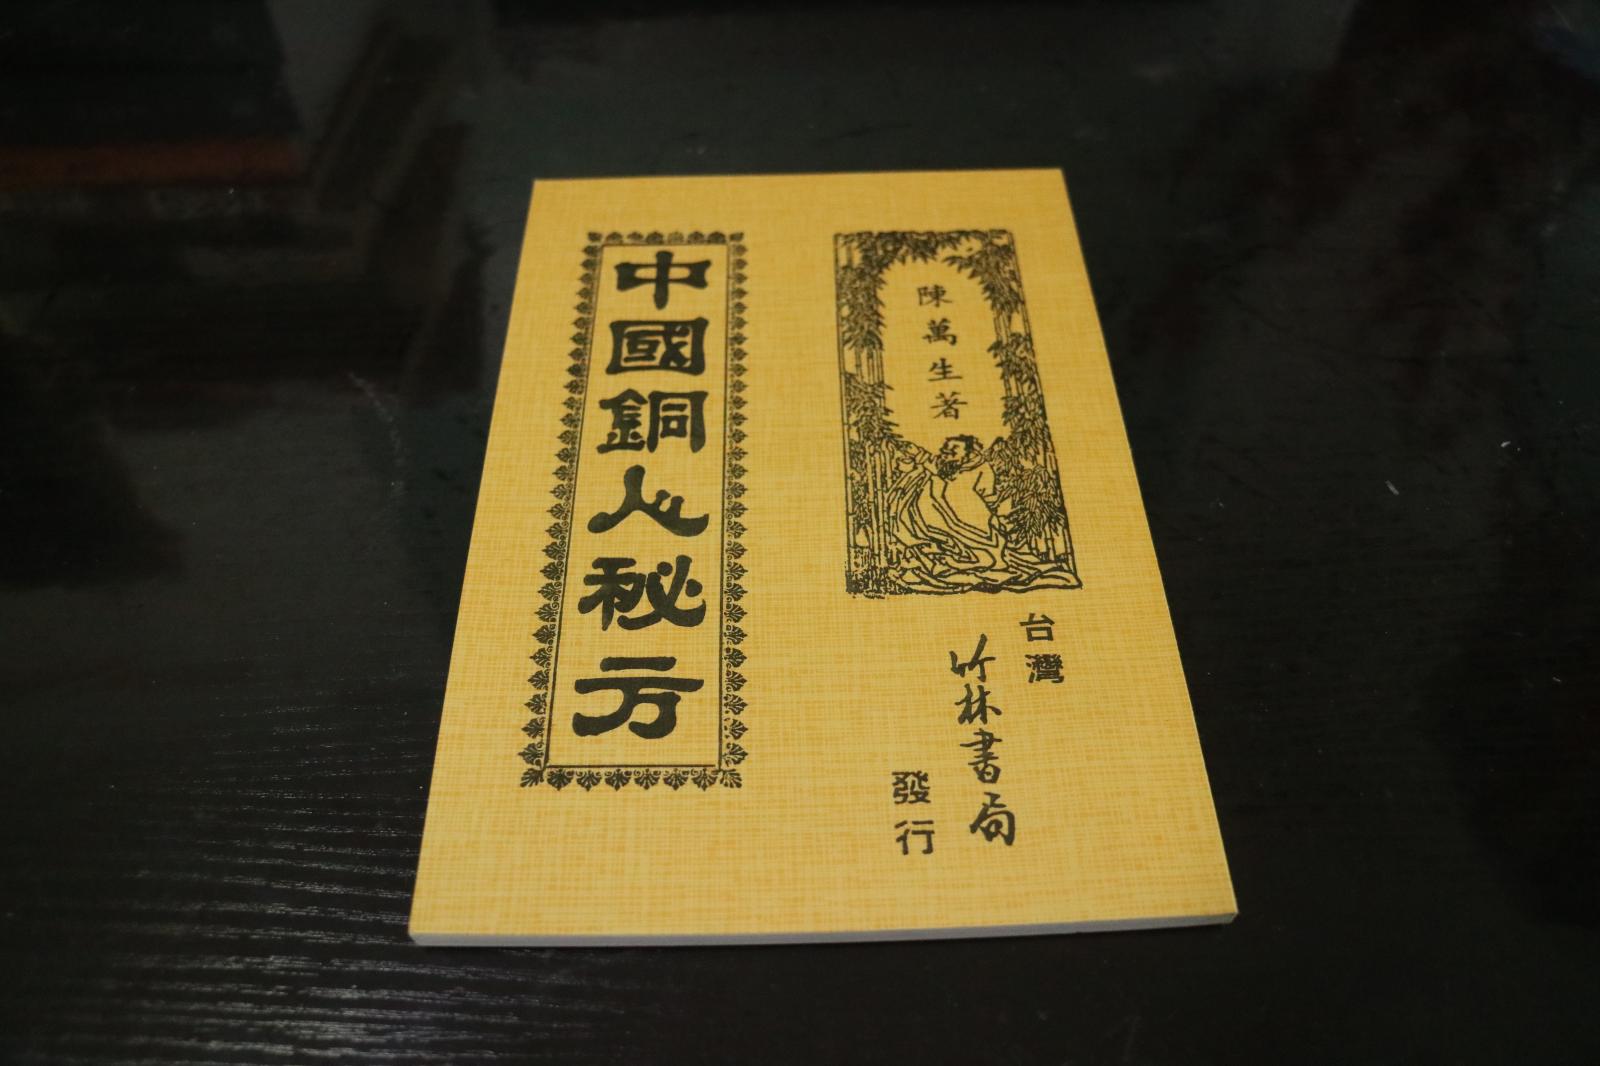 陳萬生著
台灣
竹林書局
發行
中國銅人秘方